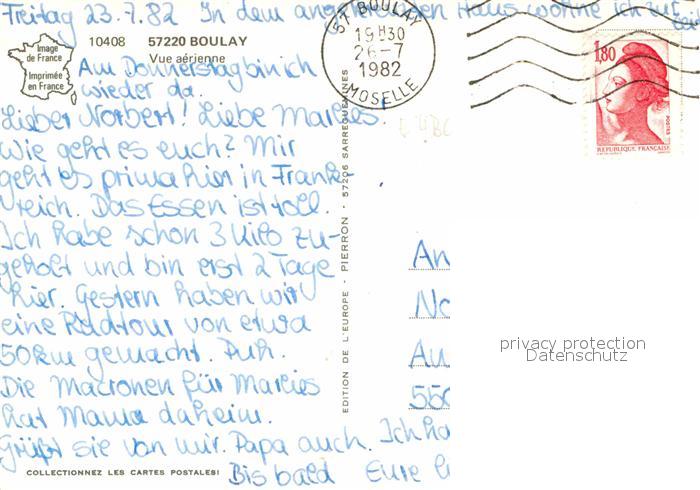 Freitag 23.7.82 In dem angekreuzten Haus wohne ich zur
Zeit
57 BOULAY
19H30
26-7
1982
MOSELLE
Image
de France
Imprimée
en France
10408 57220 BOULAY
Vue aérienne
Am Donnerstag bin ich
wieder da.
Lieber Norbert! Liebe Marlies!
Wie geht es euch? Mir
geht es prima hier in Frank-
reich. Das Essen ist toll.
Ich habe schon 3 Kilo zu-
geholt und bin erst 2 Tage
hier. Gestern haben wir
eine Radtour von etwa
50km gemacht. Puh.
Die Macronen für Marlies
hat Mama daheim.
Grüßt sie von mir. Papa auch. Ich ha
Bis bald Eure
COLLECTIONNEZ LES CARTES POSTALES!
EDITION DE L'EUROPE - PIERRON - 57206 SARREGUEMINES
1,80
POSTES
REPUBLIQUE FRANÇAISE
An
No
Au
550
privacy protection
Datenschutz